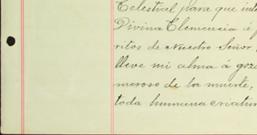 Celestial para que inte
Divina Clemencia é
ritos de Nuestro Señor
lleve mi alma á goza
meroso de la muerte,
toda humana criatura